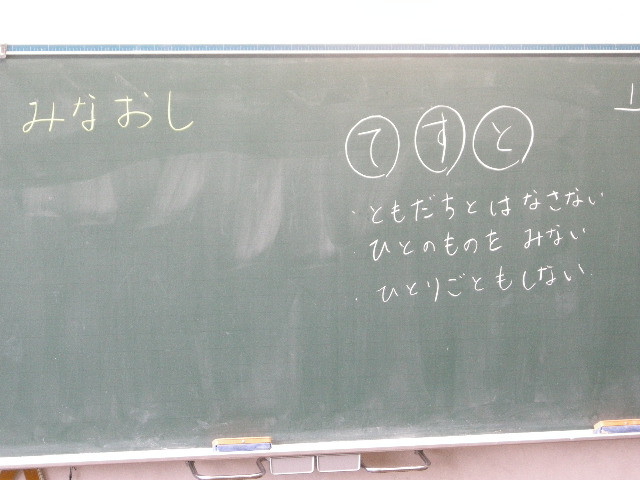 みなおし
てすと
・ともだちとはなさない
・ひとのものを みない
・ひとりごともしない